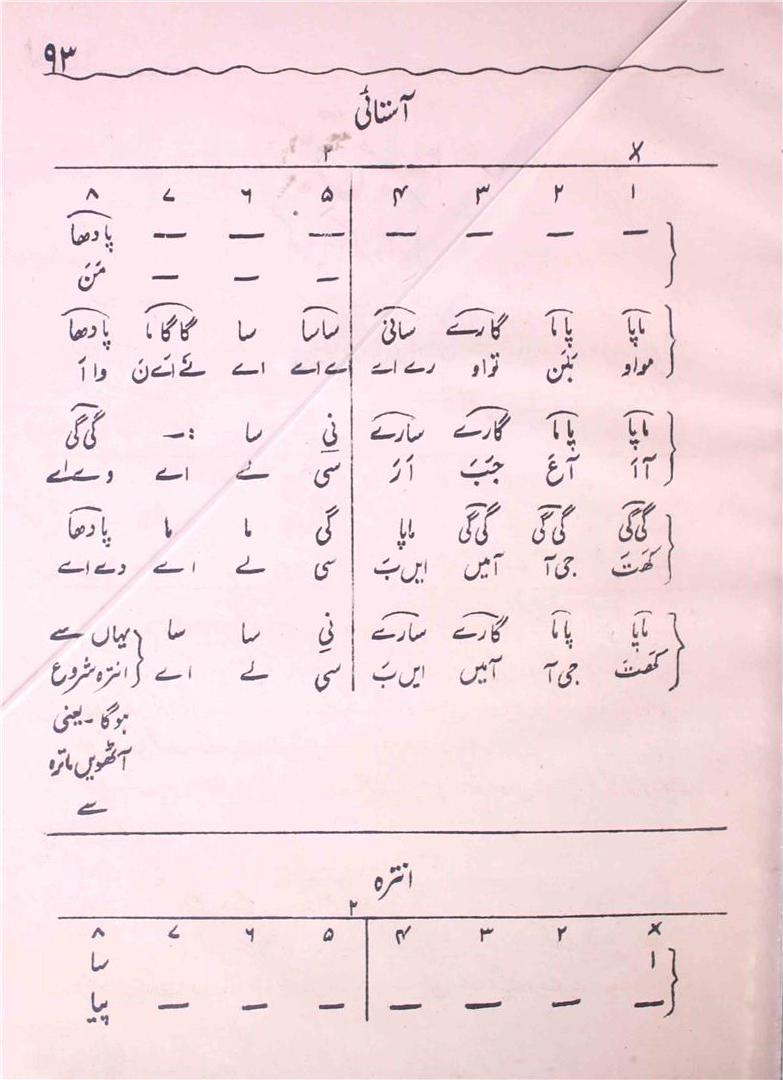 ۹۳
آستائی
X ۲
۱ ۲ ۳ ۴ ۵ ۶ ۷ ۸
— — — — — — — پادھا
– – – مَنَ
ماپا پاما گارے سانی ساسا سا گاگاما پادھا
مواو بَلَن تواو رے اے اے اے اے نَے اَے نَ وا اَ
ماپا پاما گارے سارے نی سا –: گی گی
آ اَ آعَ جَبَ اَرَ سی لے اے وے اے
گی گی گی گی گی گی ماپا گی ما ما پادھا
کھَتَ جی آ آمیں ایں بَ سی لے اے دے اے
ماپا پاما گارے سارے نی سا سا یہاں سے
کھَتَ جی آ آمیں ایں بَ سی لے اے انترہ شروع
ہوگا - یعنی
آٹھویں ماترہ
سے
انترہ
X ۲
۱ ۲ ۳ ۴ ۵ ۶ ۷ ۸
سا
— — — — — — — پیا